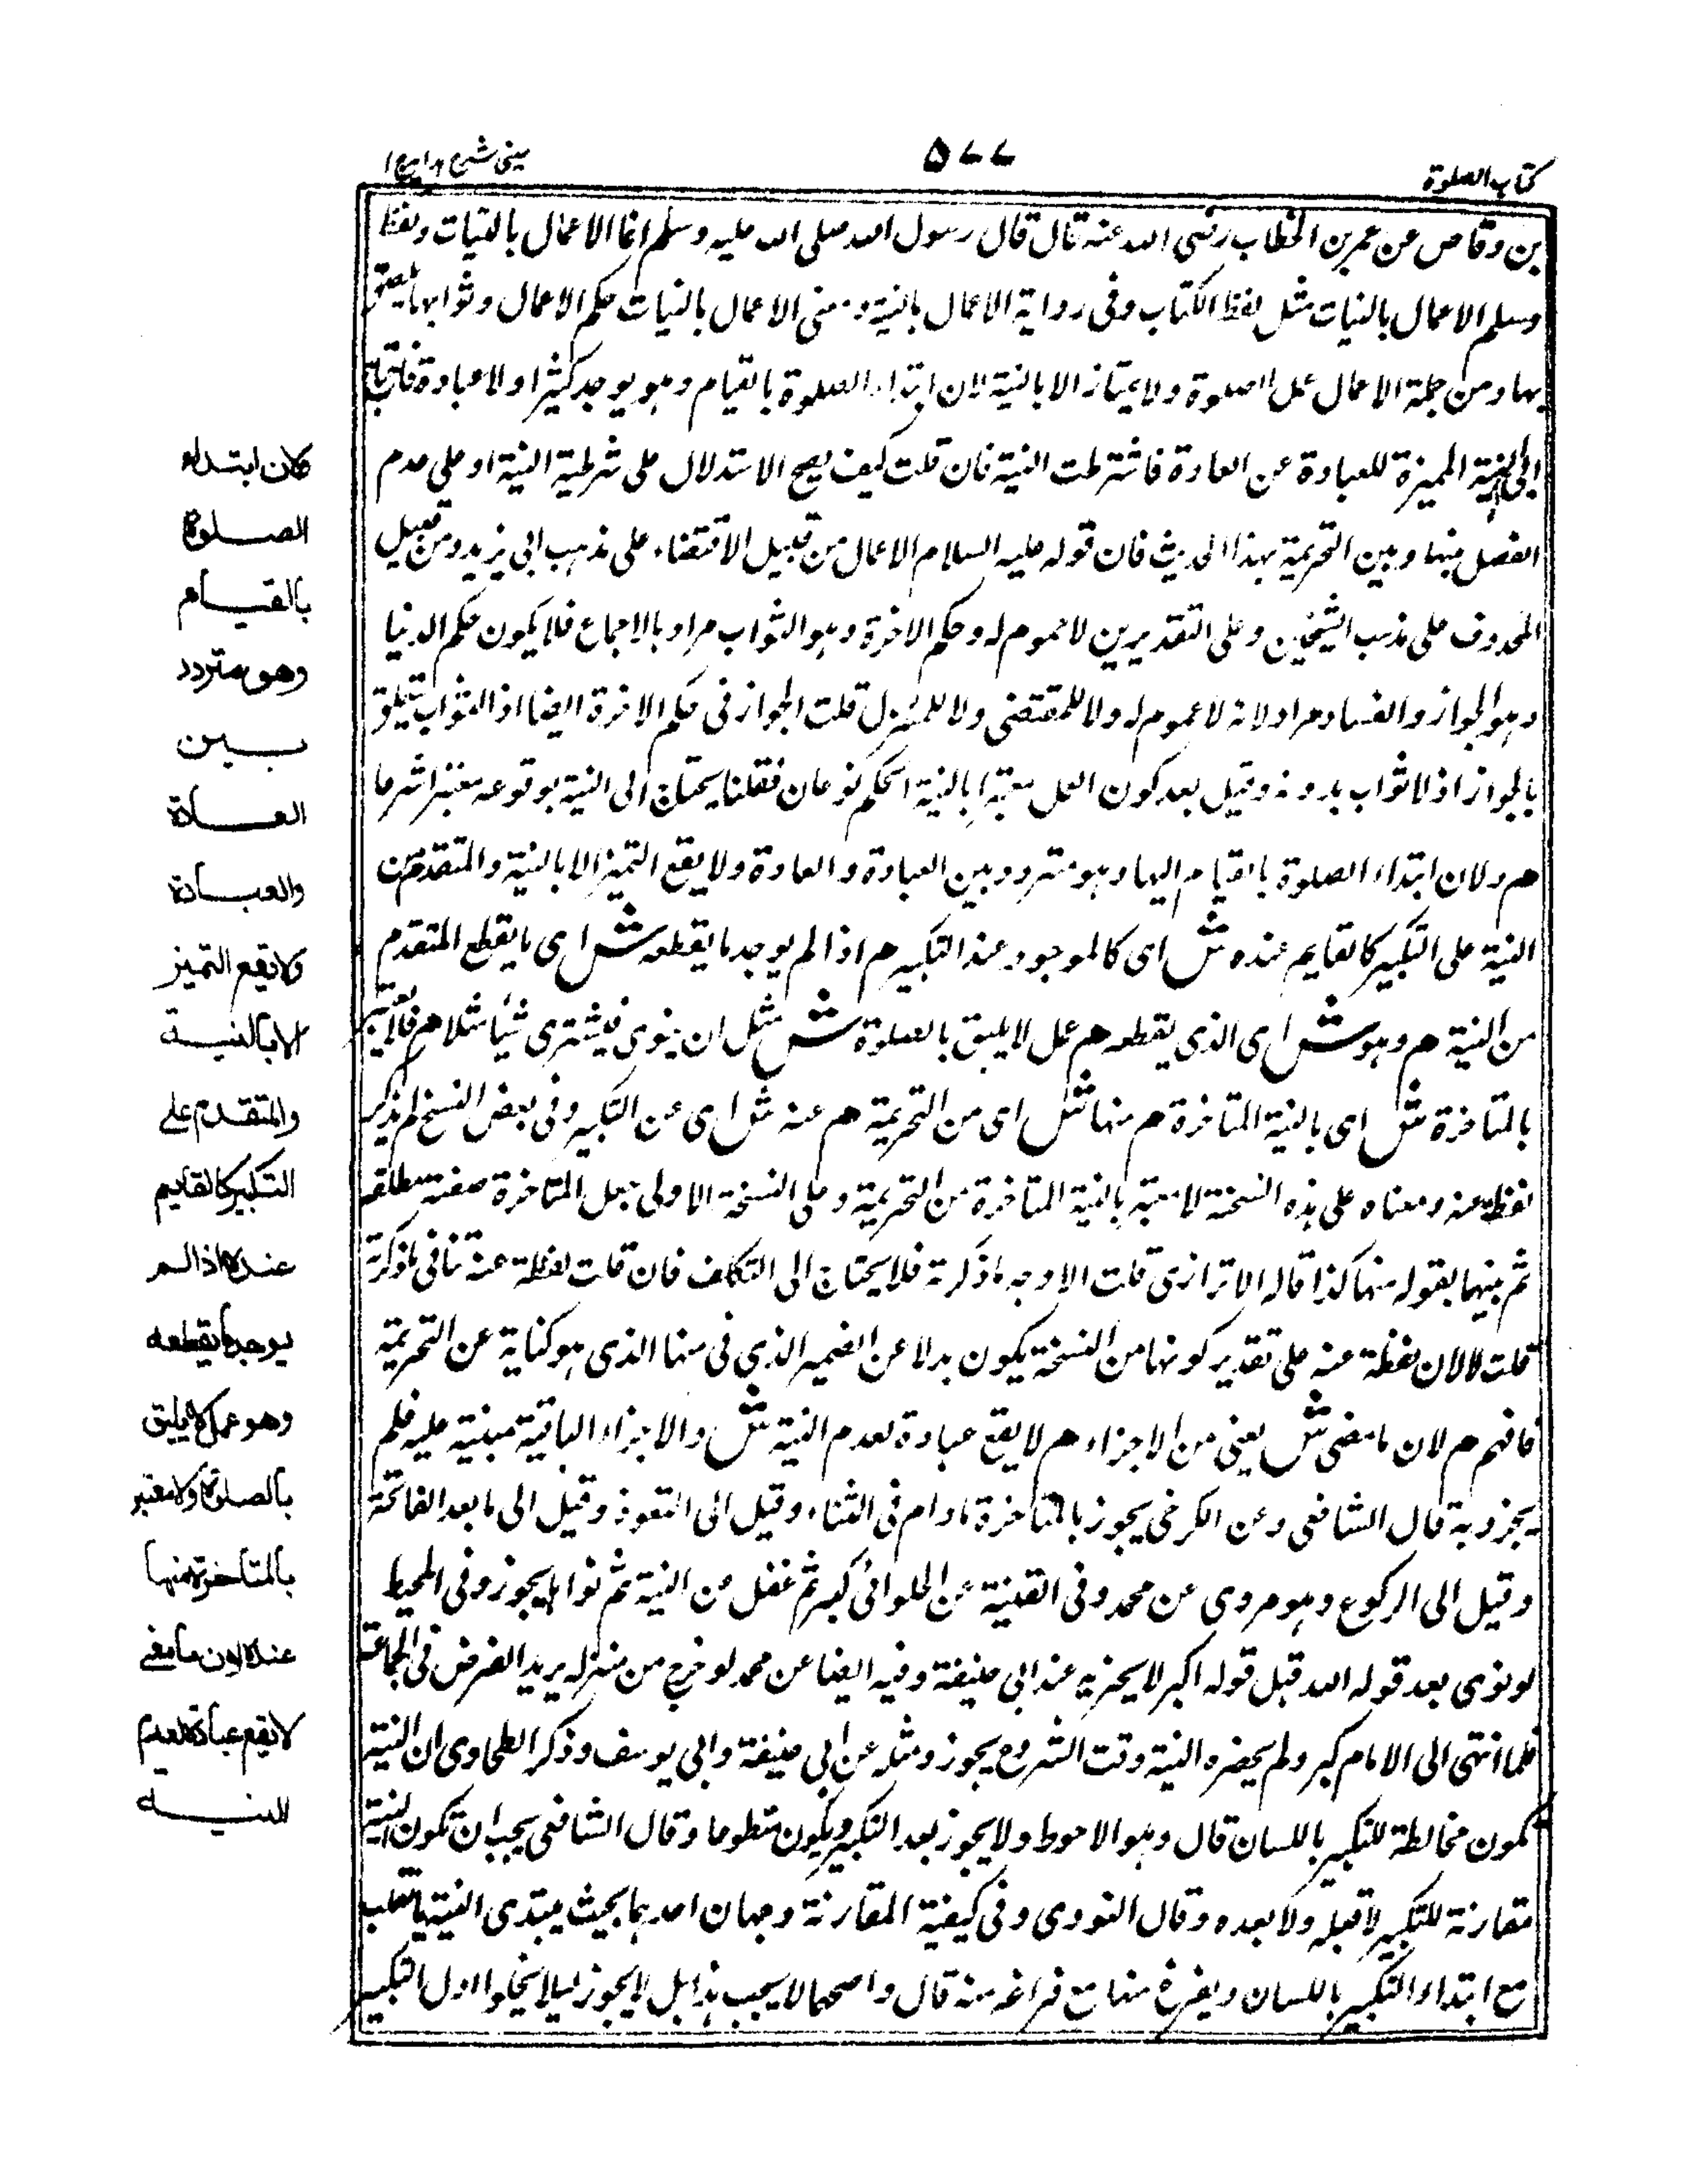 كتاب الصلوة
٥٧٧
عينى شرح هدايه ج ١
بن وقاص عن عمر بن الخطاب رضى الله عنه قال قال رسول الله صلى الله عليه وسلم انما الاعمال بالنيات ولفظ
وسلم الاعمال بالنيات مثل لفظ الكتاب وفى رواية الاعمال بالنية ومعنى الاعمال بالنيات حكم الاعمال وثوابها يلصق
بها ومن جملة الاعمال عمل الصلوة ولا يمتاز الا بالنية لان ابتداء الصلوة بالقيام وهو يوجد كثيرا ولا عبادة فاحتاج
الى النية المميزة للعبادة عن العادة فاشترطت النية فان قلت كيف يصح الاستدلال على شرطية النية او على عدم
الفصل بينها وبين التحريمة بهذا الحديث فان قوله عليه السلام الاعمال من قبيل الاقتضاء على مذهب ابى زيد ومن قبيل
المحذوف على مذهب الشيخين وعلى التقديرين لا عموم له وحكم الاخرة وهو الثواب مراد بالاجماع فلا يكون حكم الدنيا
وهو الجواز والفساد مراد لانه لا عموم له ولا للمقتضى ولا للمشترك قلت الجواز فى حكم الاخرة ايضا اذ الثواب يتعلق
بالجواز اذ لا ثواب بدونه وقيل بعد كون العمل معتبرا بالنية الحكم نوعان فقلنا يحتاج الى النية بوقوعه معتبرا شرعا
هم ولان ابتداء الصلوة بالقيام اليها وهو متردد بين العبادة والعادة ولا يقع التميز الا بالنية والمتقدم من
النية على التكبير كالقايم عنده ش اى كالموجود عند التكبير هم اذا لم يوجد ما يقطعه ش اى ما يقطع المتقدم
من النية هم وهو ش اى الذى يقطعه هم عمل لا يليق بالصلوة ش مثل ان ينوى فيشترى شيأ مثلا هم ولا معتبر
بالمتاخرة ش اى بالنية المتاخرة هم منها ش اى من التحريمة هم عنه ش اى عن التكبير وفى بعض النسخ لم يذكر
لفظة عنه ومعناه على هذه النسخة لا معتبر بالنية المتاخرة من التحريمة وعلى النسخة الاولى جعل المتاخرة صفة مطلقة
ثم بينها بقوله منها كذا قاله الاترازى قلت الاوجه ما ذكرته فلا يحتاج الى التكلف فان قلت لفظة عنه تنافى ما ذكرته
قلت لا لان لفظة عنه على تقدير كونها من النسخة يكون بدلا عن الضمير الذى فى منها الذى هو كناية عن التحريمة
فافهم هم لان ما مضى ش يعنى من الاجزاء هم لا يقع عبادة لعدم النية ش والاجزاء الباقية مبنية عليه فلم
يجز وبه قال الشافعى وعن الكرخى يجوز بالمتاخرة ما دام فى الثناء وقيل الى التعوذ وقيل الى ما بعد الفاتحة
وقيل الى الركوع وهو مروى عن محمد وفى القنية عن الحلوائى كبر ثم غفل عن النية ثم نواها يجوز وفى المحيط
لو نوى بعد قوله الله قبل قوله اكبر لا يجزيه عند ابى حنيفة وفيه ايضا عن محمد لو خرج من منزله يريد الفرض فى الجماعة
فلما انتهى الى الامام كبر ولم يحضره النية وقت الشروع يجوز ومثله عن ابى حنيفة وابى يوسف وذكر الطحاوى ان النية
تكون مخالطة للتكبير باللسان قال وهو الاحوط ولا يجوز بعد التكبير ويكون متطوعا وقال الشافعى يجب ان تكون النية
مقارنة للتكبير لا قبله ولا بعده وقال النووى وفى كيفية المقارنة وجهان احدهما بحيث يبتدى النية بالقلب
مع ابتداء التكبير باللسان ويفرغ منها مع فراغه منه قال واصحهما لا يجب هذا بل لا يجوز ليلا يخلوا اول التكبير
ولان ابتداء
الصلوة
بالقيام
وهو متردد
بين
العادة
والعبادة
ولا يقع التميز
الا بالنية
والمتقدم على
التكبير كالقايم
عنده اذا لم
يوجد ما يقطعه
وهو عمل لا يليق
بالصلوة ولا معتبر
بالمتاخرة منها
عنه لان ما مضى
لا يقع عبادة لعدم
النية